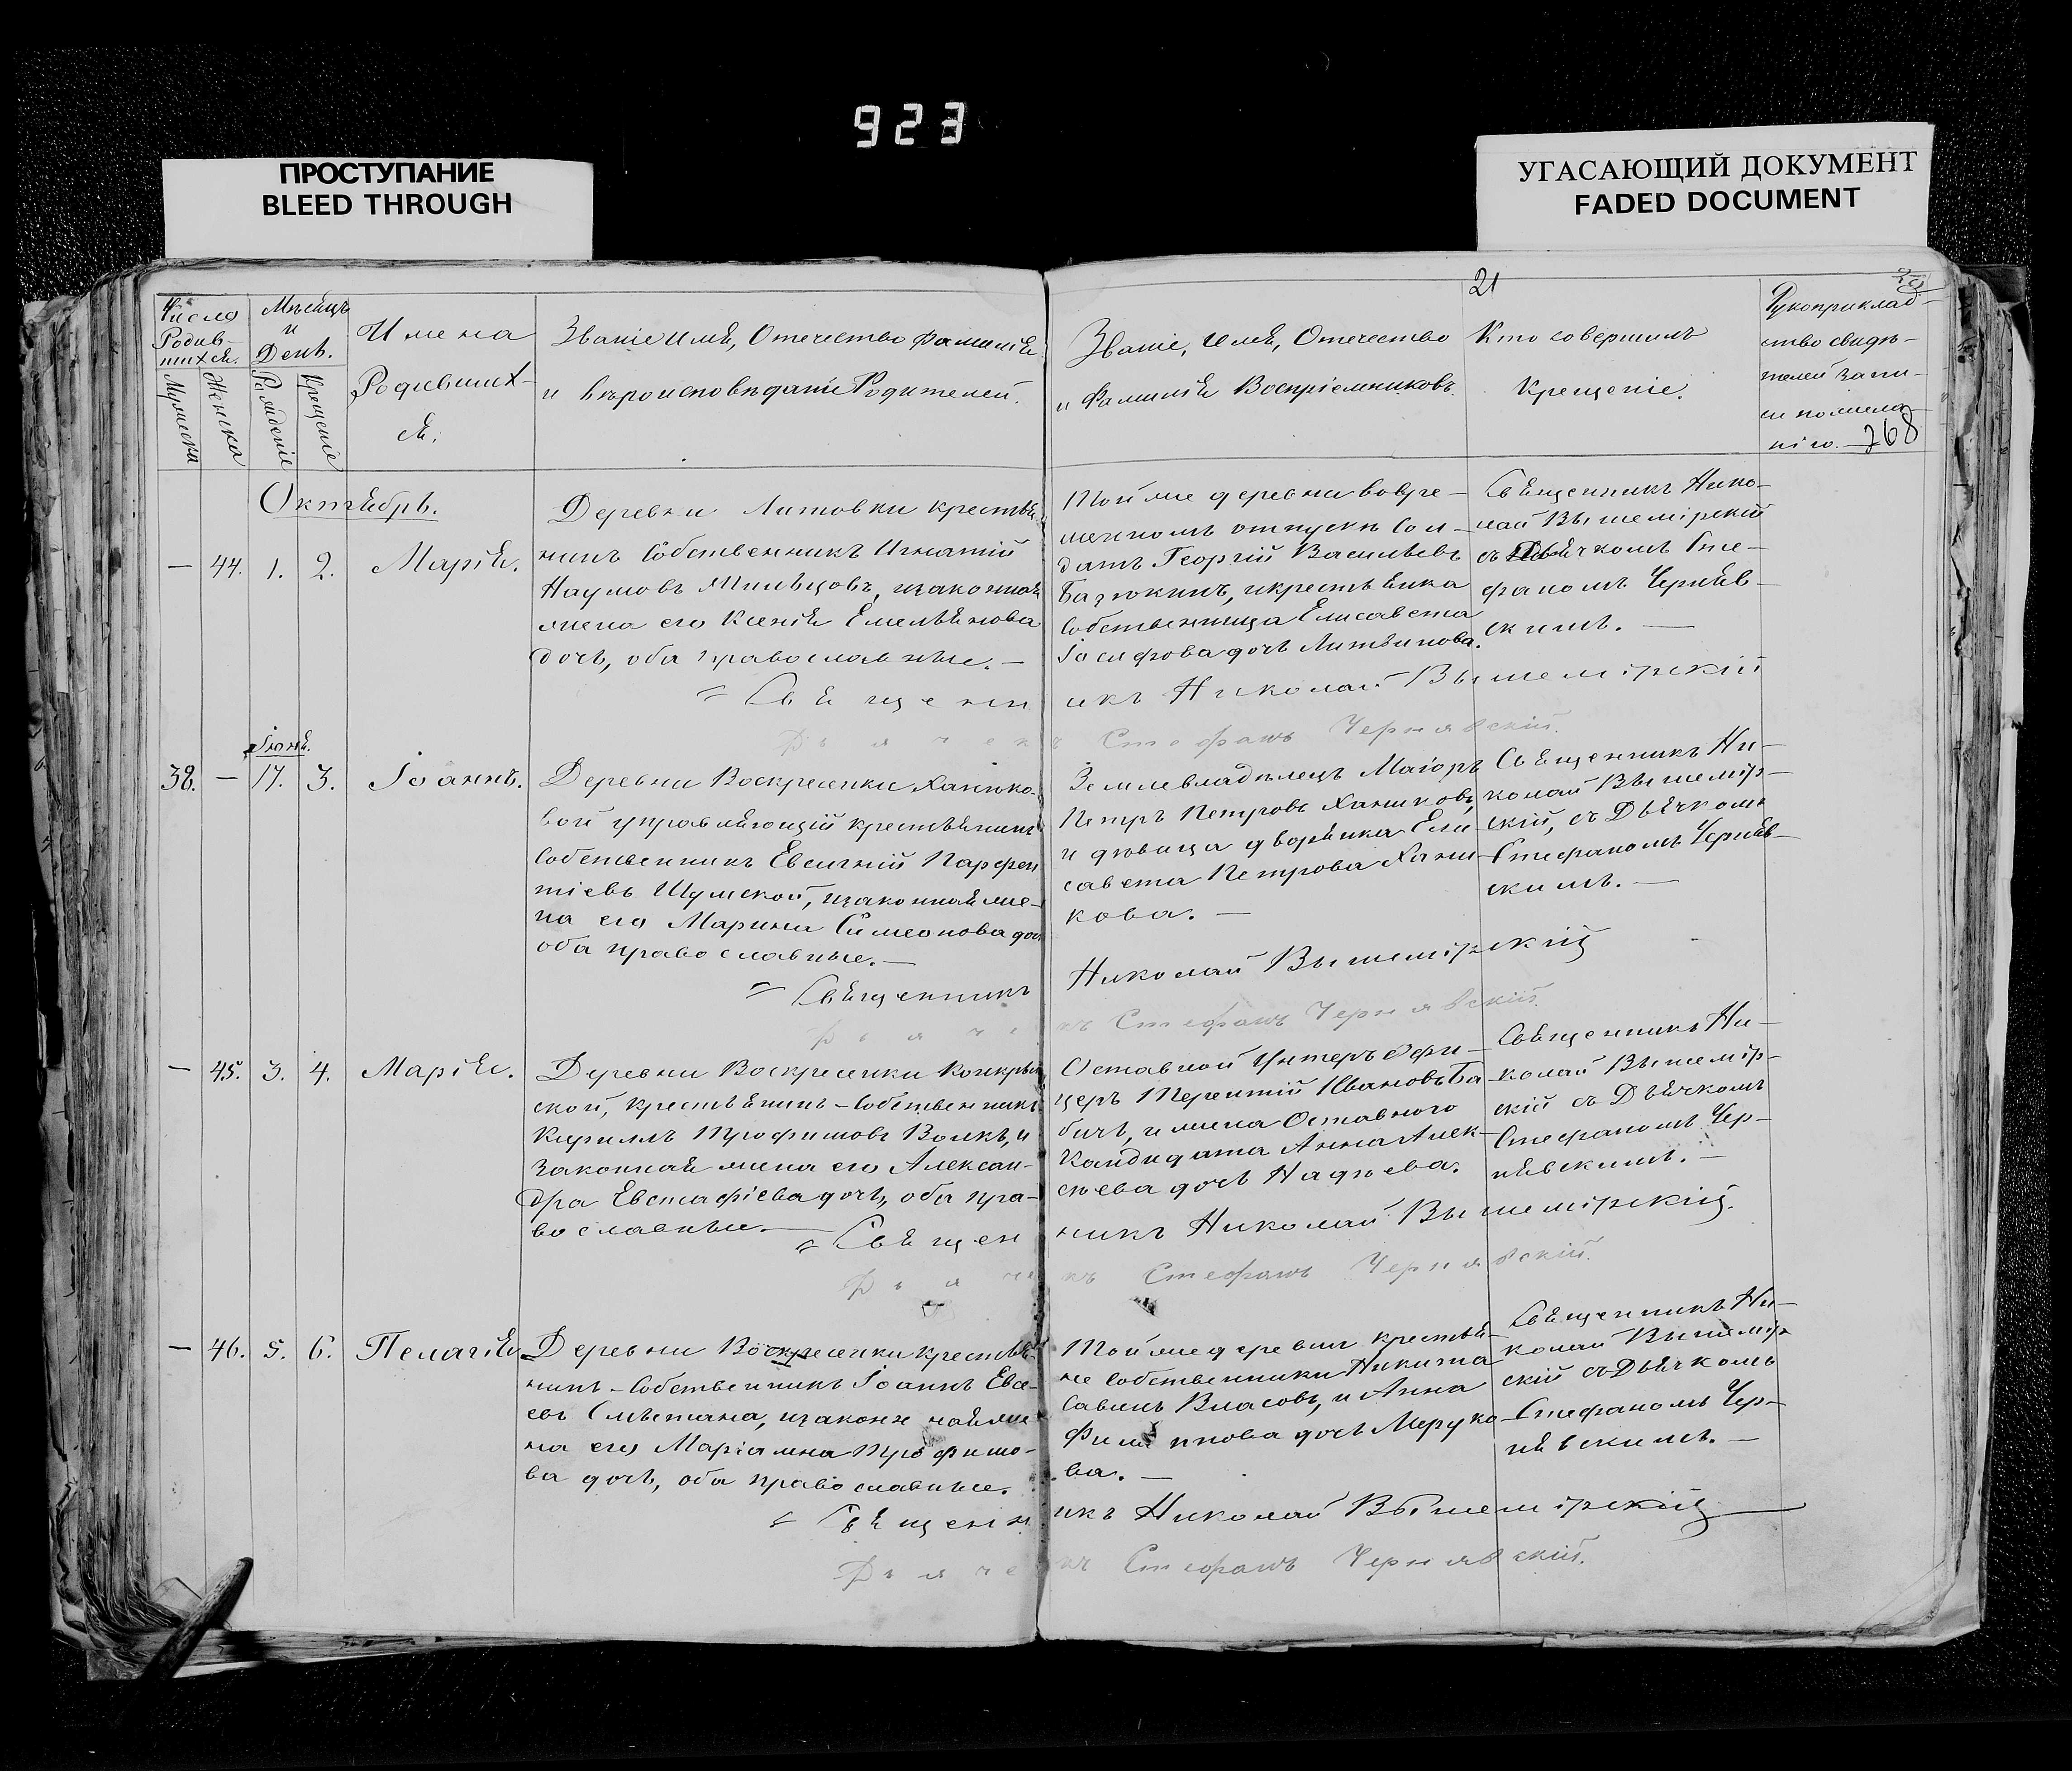 923
ПРОСТУПАНИЕ
BLEED THROUGH
УГАСАЮЩИЙ ДОКУМЕНТ
FADED DOCUMENT
21
Число
Родив-
шихся.
Мужеска
Женска
Мѣсяцъ
и
День.
Рожденіе
Крещеніе
Имена
Родивших-
ся.
Званіе имя, Отечество фамилія
и вѣроисповѣданіе Родителей.
Званіе, имя, Отечество
и Фамилія Воспріемниковъ.
Кто совершилъ
Крещеніе.
Рукоприклад-
ство свидѣ-
телей запи-
си по жела-
нію.
768
Октябрь.
— 44. 1. 2. Марія.
Деревни Литовки крестья-
нинъ Собственникъ Игнатій
Наумовъ Мильцовъ, изаконная
жена его Ксенія Емельянова
дочь, оба православные. —
Той же деревни вовре-
менномъ отпускѣ Сол-
датъ Георгій Васильевъ
Базюкинъ, икрестьянка
Собственница Елисавета
Іосифова дочь Литвинова.
Священникъ Нико-
лай Вышемірскій
съ Дьячкомъ Сте-
фаномъ Черняв-
скимъ. —
= Священникъ Николай Вышемірскій
Дьячекъ Стефанъ Чернявскій.
Іюня.
38. — 17. 3. Іоаннъ.
Деревни Воскресенки Ханыко-
вой управляющій крестьянинъ
Собственникъ Евсигній Парфен
тіевъ Шумской, изаконная же-
на его Марина Симеонова доч
оба православные. —
Землевладѣлецъ Маіоръ
Петръ Петровъ Ханыковъ,
и дѣвица дворянка Ели-
савета Петрова Ханы-
кова. —
Священникъ Ни-
колай Вышемір-
скій, съ Дьячкомъ
Стефаномъ Черняв-
скимъ. —
= Священникъ Николай Вышемірскій
Дьячекъ Стефанъ Чернявскій.
— 45. 3. 4. Марія.
Деревни Воскресенки
ской, крестьянинъ-Собственникъ
Кириллъ Трофимовъ Волкъ, и
законная жена его Алексан-
дра Евстафіева дочь, оба пра-
вославные. —
Оставной Унтеръ Офи-
церъ Терентій Ивановъ Ба
бичъ, и жена Оставного
Кандидата Анна Алек-
сѣева дочь Надѣева.
Священникъ Ни-
колай Вышемір-
скій съ Дьячкомъ
Стефаномъ Чер-
нявскимъ. —
= Священникъ Николай Вышемірскій.
Дьячекъ Стефанъ Чернявскій.
— 46. 5. 6. Пелагія
Деревни Воскресенки крестья-
нинъ-Собственникъ Іоаннъ Евсе-
евъ Смѣтана, изаконная же-
на его Маріамна Трофимо-
ва дочь, оба православные.
Той же деревни крестья-
не собственники Никита
Савинъ Власовъ, и Анна
Филиппова дочь Меруко
ва. —
Священникъ Ни-
колай Вышемір-
скій съ Дьячкомъ
Стефаномъ Чер-
нявскимъ. —
= Священникъ Николай Вышемірскій
Дьячекъ Стефанъ Чернявскій.